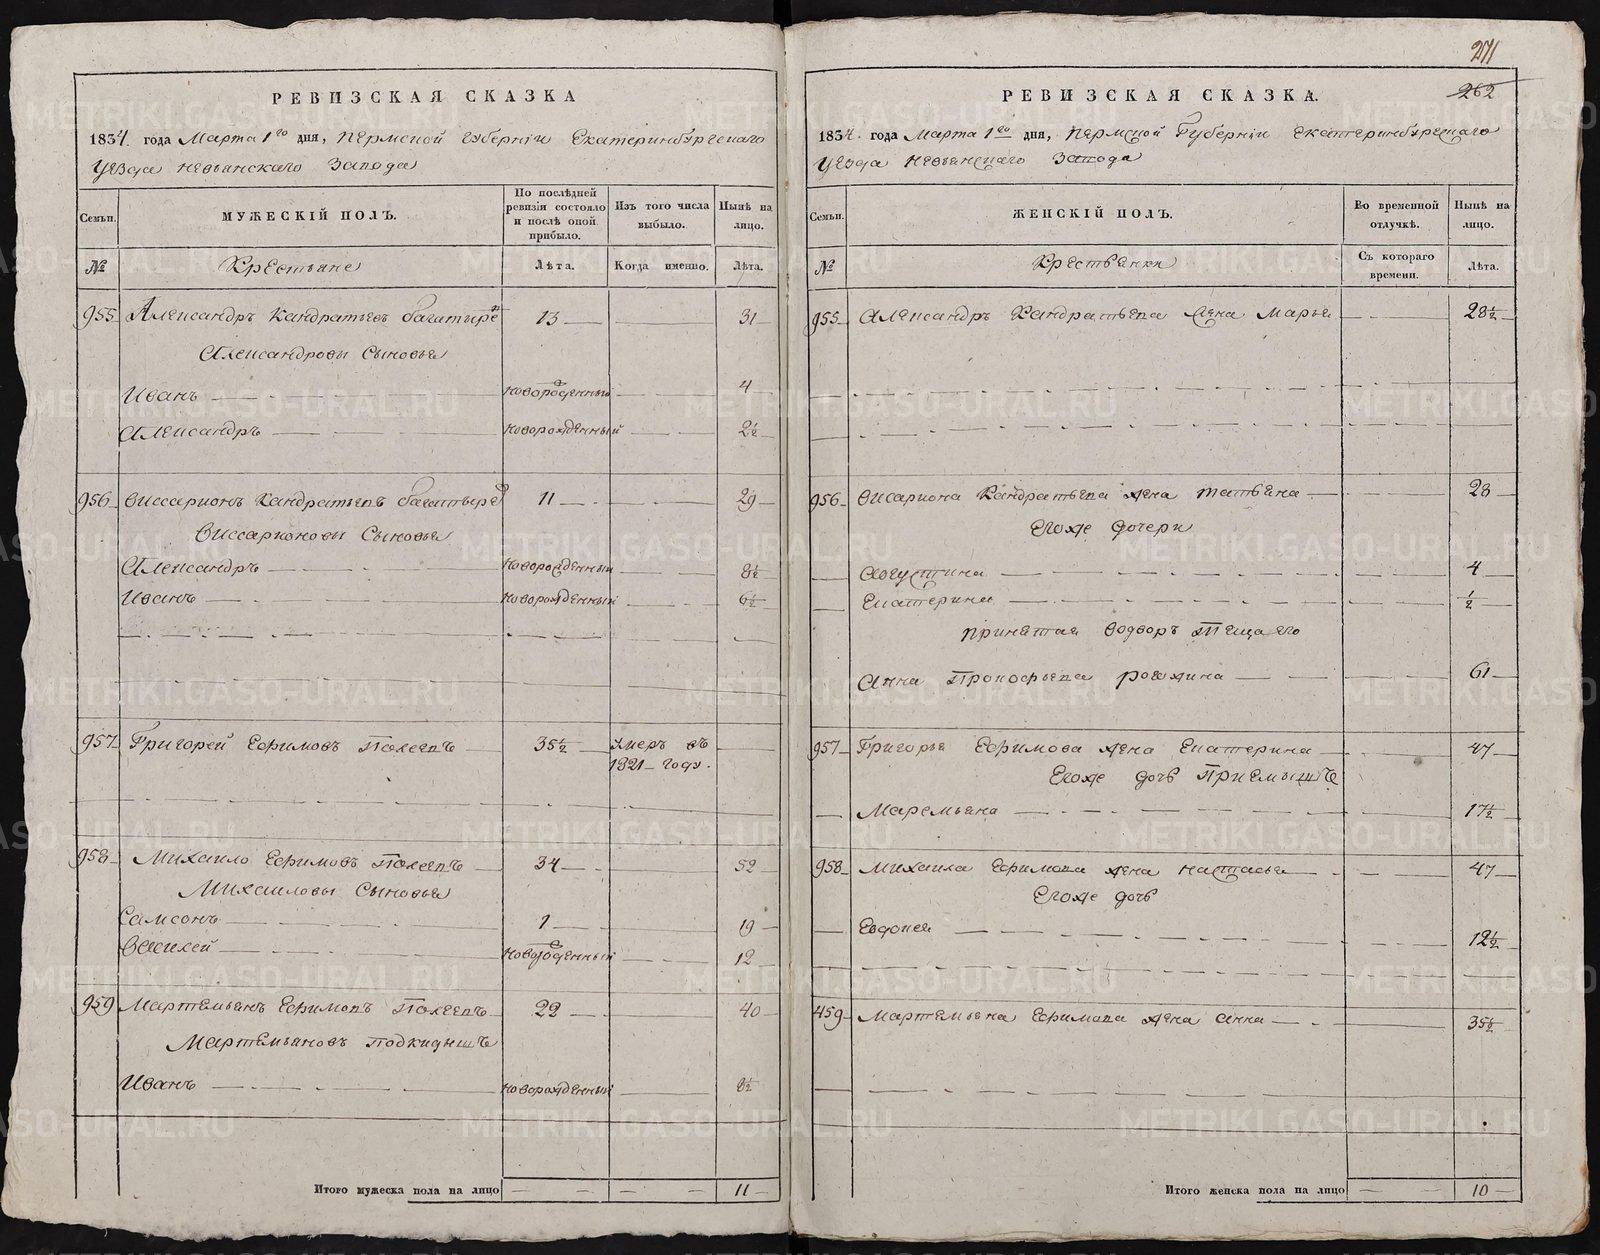 271
262
РЕВИЗСКАЯ СКАЗКА
1834. года Марта 1го дня, Пермской губернiи Екатеринбургскаго
Уезда Невьянскаго Завода
Семьи.
МУЖЕСКIЙ ПОЛЪ.
По послѣдней ревизiи состояло и послѣ оной прибыло.
Изъ того числа выбыло.
Нынѣ на лицо.
№
Крестьяне
Лѣта.
Когда именно.
Лѣта.
955 Александръ Кандратьевъ Багатыревъ 13 31
Александровы Сыновья
Иванъ новорожденный 4
Александръ новорожденный 2½
956 Виссарионъ Кандратьевъ Багатыревъ 11 29
Виссарионовы Сыновья
Александръ новорожденный 8½
Иванъ новорожденный 6½
957 Григорей Ефимовъ Полеевъ 35½ умеръ въ
1821 году.
958 Михаило Ефимовъ Полеевъ 34 52
Михаиловы Сыновья
Самсонъ 1 19
Василей новорожденный 12
959 Мартемьянъ Ефимовъ Полеевъ 22 40
Мартемьяновъ подкидышъ
Иванъ новорожденный 8½
Итого мужеска пола на лицо 11
РЕВИЗСКАЯ СКАЗКА.
1834. года Марта 1го дня, Пермской Губернiи Екатеринбургскаго
Уезда Невьянскаго Завода
Семьи.
ЖЕНСКIЙ ПОЛЪ.
Во временной отлучкѣ.
Нынѣ на лицо.
№
Крестьянки
Съ котораго времени.
Лѣта.
955 Александръ Кандратьева Жена Марья 28½
956 Висариона Кандратьева жена татьяна 28
Егоже дочери
Августина 4
Екатерина ½
принятая водворъ Теща его
Анна Прокофьева рогожина 61
957 Григорья Ефимова жена Екатерина 47
Егоже дочь Приемышъ
Маремьяна 17½
958 Михаила Ефимова жена настасья 47
Егоже дочь
Евдокея 12½
459 Мартемьяна Ефимова жена Анна 35½
Итого женска пола на лицо 10
METRIKI.GASO-URAL.RU